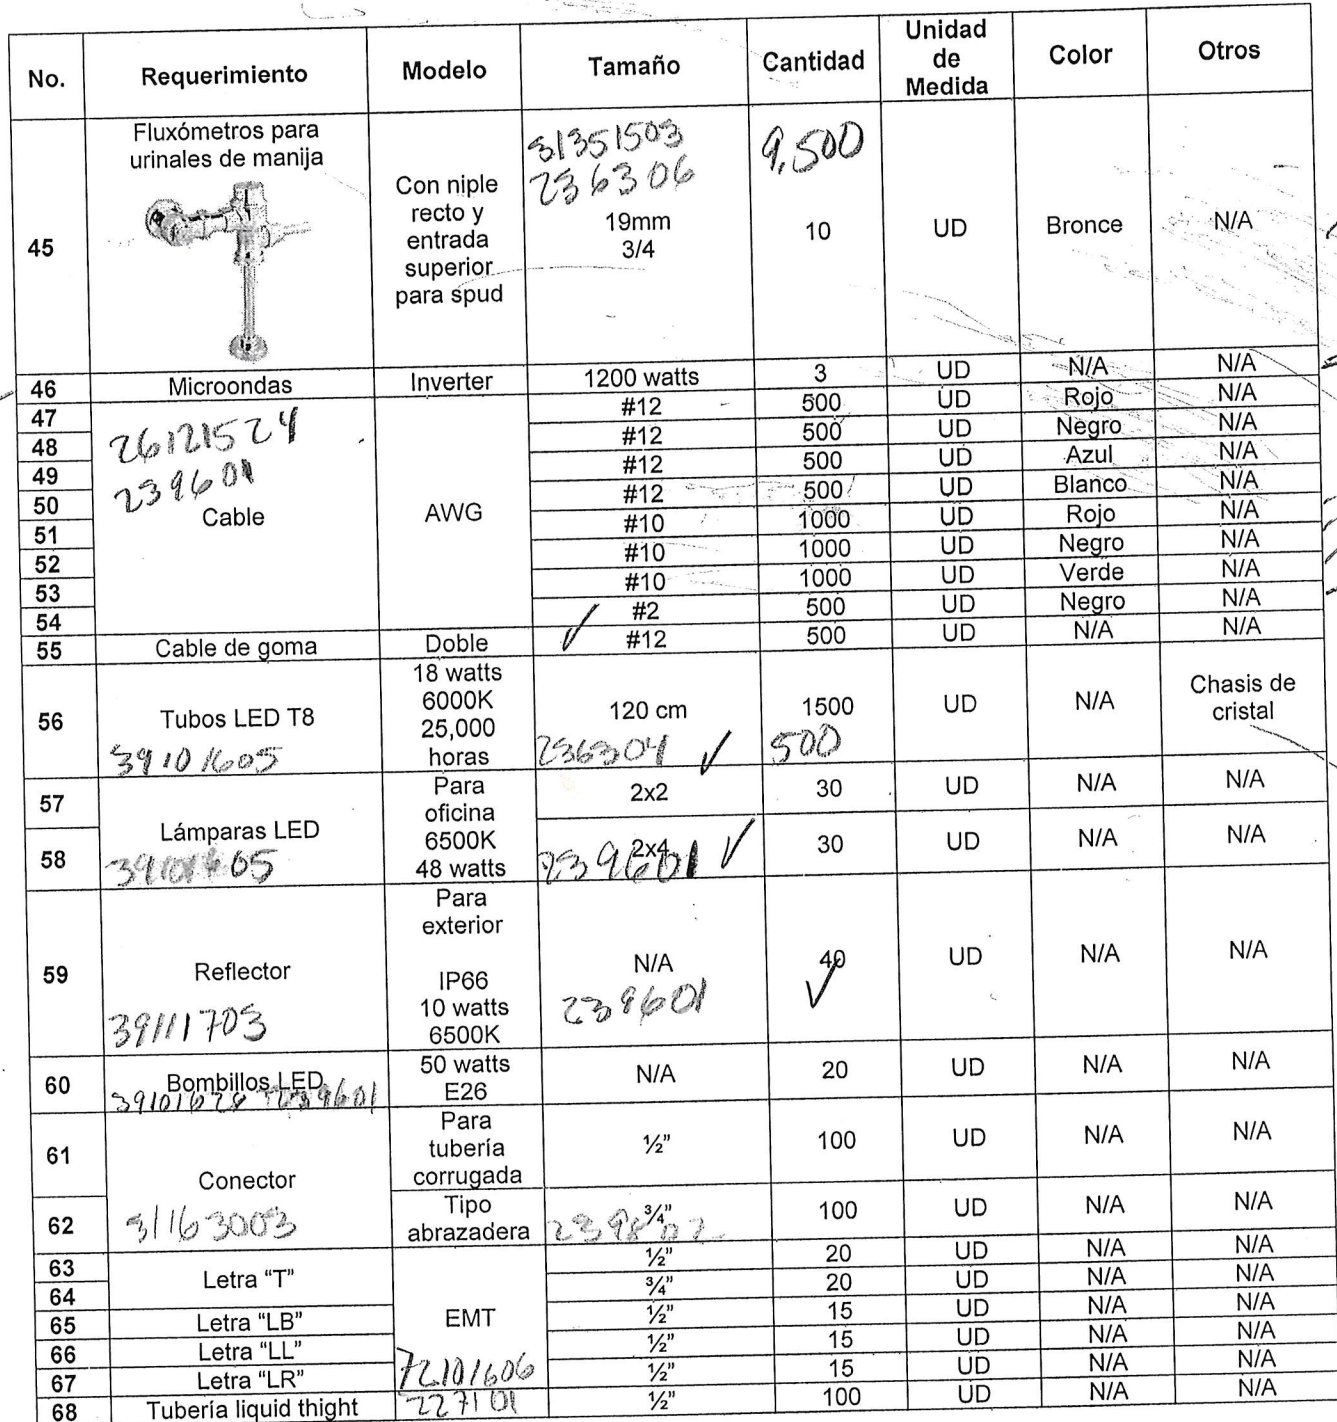 No. Requerimiento Modelo Tamaño Cantidad Unidad de Medida Color Otros
45 Fluxómetros para urinales de manija Con niple recto y entrada superior para spud 31351503 236306 19mm 3/4 9,500 10 UD Bronce N/A
46 Microondas Inverter 1200 watts 3 UD N/A N/A
26121524
239601
Cable AWG
47 #12 500 UD Rojo N/A
48 #12 500 UD Negro N/A
49 #12 500 UD Azul N/A
50 #12 500 UD Blanco N/A
51 #10 1000 UD Rojo N/A
52 #10 1000 UD Negro N/A
53 #10 1000 UD Verde N/A
54 #2 500 UD Negro N/A
55 Cable de goma Doble #12 500 UD N/A N/A
56 Tubos LED T8 39101605 18 watts 6000K 25,000 horas 120 cm 236304 1500 500 UD N/A Chasis de cristal
Lámparas LED 39101605 Para oficina 6500K 48 watts
57 2x2 30 UD N/A N/A
58 2x4 239601 30 UD N/A N/A
59 Reflector 39111703 Para exterior IP66 10 watts 6500K N/A 239601 40 UD N/A N/A
60 Bombillos LED 39101628 239601 50 watts E26 N/A 20 UD N/A N/A
Conector 31163003
61 Para tubería corrugada ½” 100 UD N/A N/A
62 Tipo abrazadera ¾” 239802 100 UD N/A N/A
EMT 72101606
63 Letra “T” ½” 20 UD N/A N/A
64 ¾” 20 UD N/A N/A
65 Letra “LB” ½” 15 UD N/A N/A
66 Letra “LL” ½” 15 UD N/A N/A
67 Letra “LR” ½” 15 UD N/A N/A
68 Tubería liquid thight 227101 ½” 100 UD N/A N/A